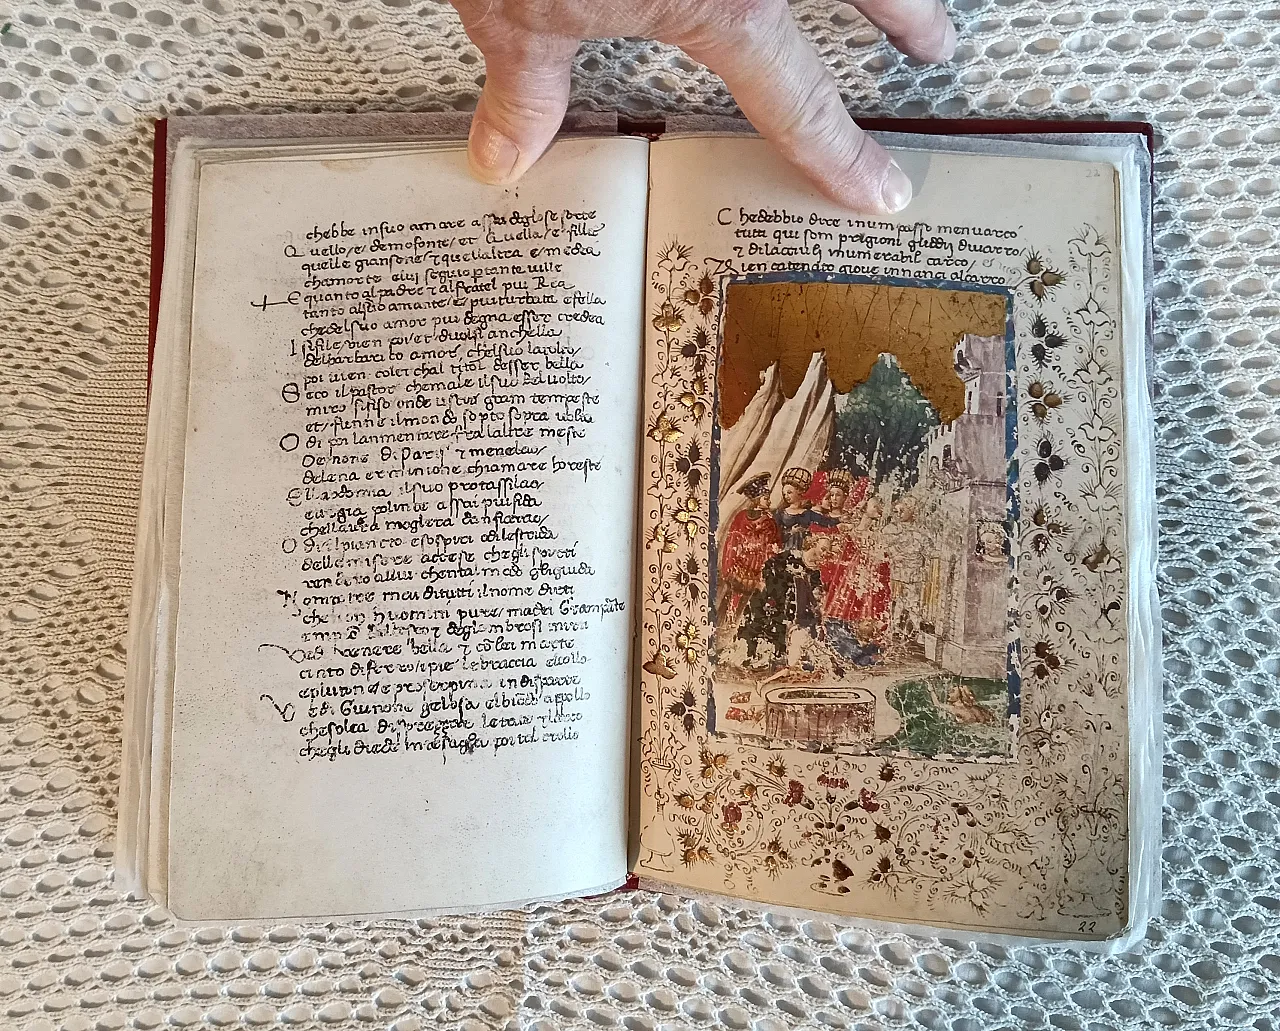 chebbe in suo amore assai diglose sorte
Quello/e/ demofonte/ et quella/ e/ fille
quello e giansone/ τ quellaltra e/ medea
chamor te elui seguio ptante ville
E quanto al padre τ al fratel piu Rea
tanto al suo amante/ e/ piu turbata e fella
che del suo amor piu degna esser credea
Isifile vien poi et duolsi anchella
del barbarito amor, chel suo la tolto/
poi vien colei chal titol desser bella
Seco il pastor che male il suo bel volto/
miro si fiso onde uscir gram tempeste
et funne il mondo sotto sopra volto
Odi poi lanmentare fra laltre meste
Oenone di Paris τ menelao/
delena er erminione chiamare horeste
E Laodomia il suo protassilao
et argia polinice assai piu fida
chellavara mogliera danfiarao/
Odi il pianto e sospiri odi lestrida
delle misere accese che gli spirti
rendero allui chental modo gli guida
Non potre mai di tutti il nome dirti
che non huomini pure/ ma dei Gramparte
di
Vedi venere bella τ co lei marte
cinto di ferro/ i pie/ le braccia el collo
e plutone e proserpina in disparte
Vedi Giunone gelosa el biondo apollo
che solea disprezzare letate τ larco
che gli diede in tesaglia poi tal crollo
22
Che debbio dire in um passo men varco
tutti qui som prigioni gli dei di varro/
τ di lacciuli innumerabil carco/
Vien catenato giove innanci al carro
22